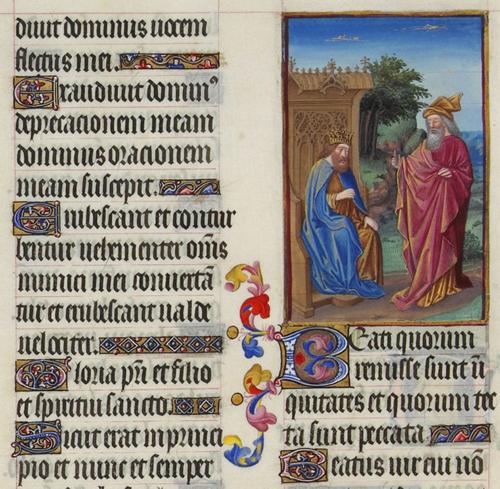 diuit dominus uocem
fletus mei.
Exaudiuit domin⁹
deprecationem meam
dominus orationem
meam suscepit.
Erubescant et contur
bentur uehementer om̄s
inimici mei conuertā
tur et erubescant ualde
uelociter.
Gloria pr̄i et filio
et spiritui sancto.
Sicut erat in princi
pio et nunc et semper
Beati quorum
remisse sunt in̄
quitates et quorum tec
ta sunt peccata.
Beatus uir cui nō